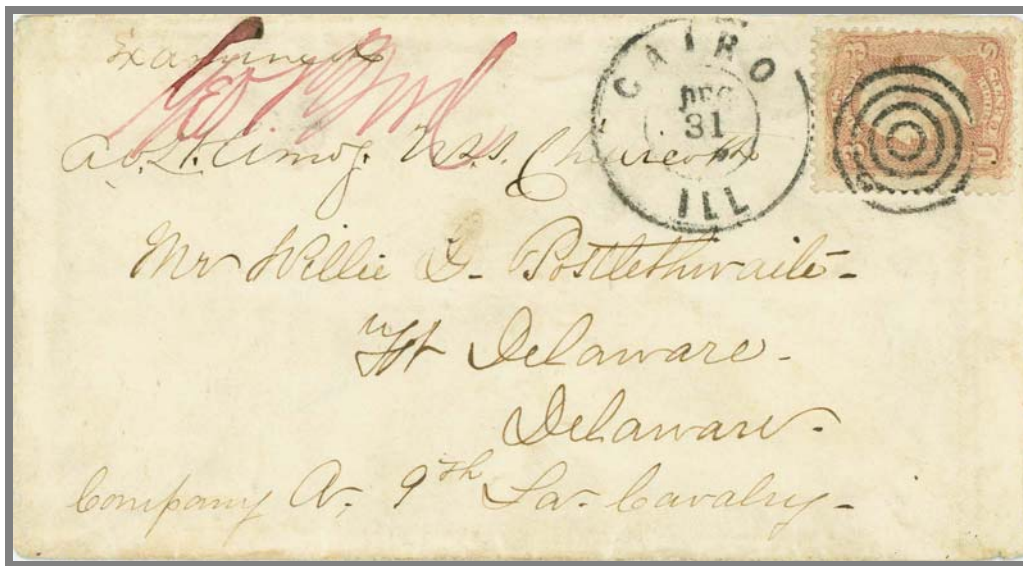 Examined
U.S.S.
CAIRO
DEC
31
ILL
Mr Willie G. Postlethwaite -
Ft Delaware -
Delaware.
Company A, 9th La. Cavalry -